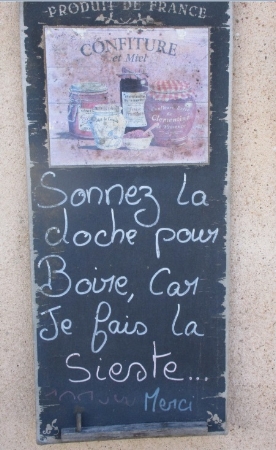 PRODUIT DE FRANCE
CONFITURE
et Miel
Sonnez la
cloche pour
Boire, Car
Je fais la
Sieste...
Merci